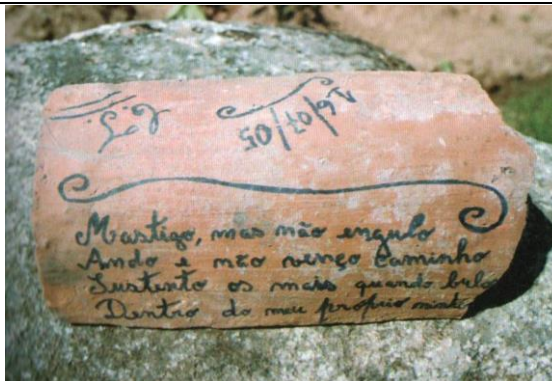 16/07/05
Mastigo, mas não engulo
Ando e não venço caminho
Sustento os mais quando bulo
Dentro do meu próprio